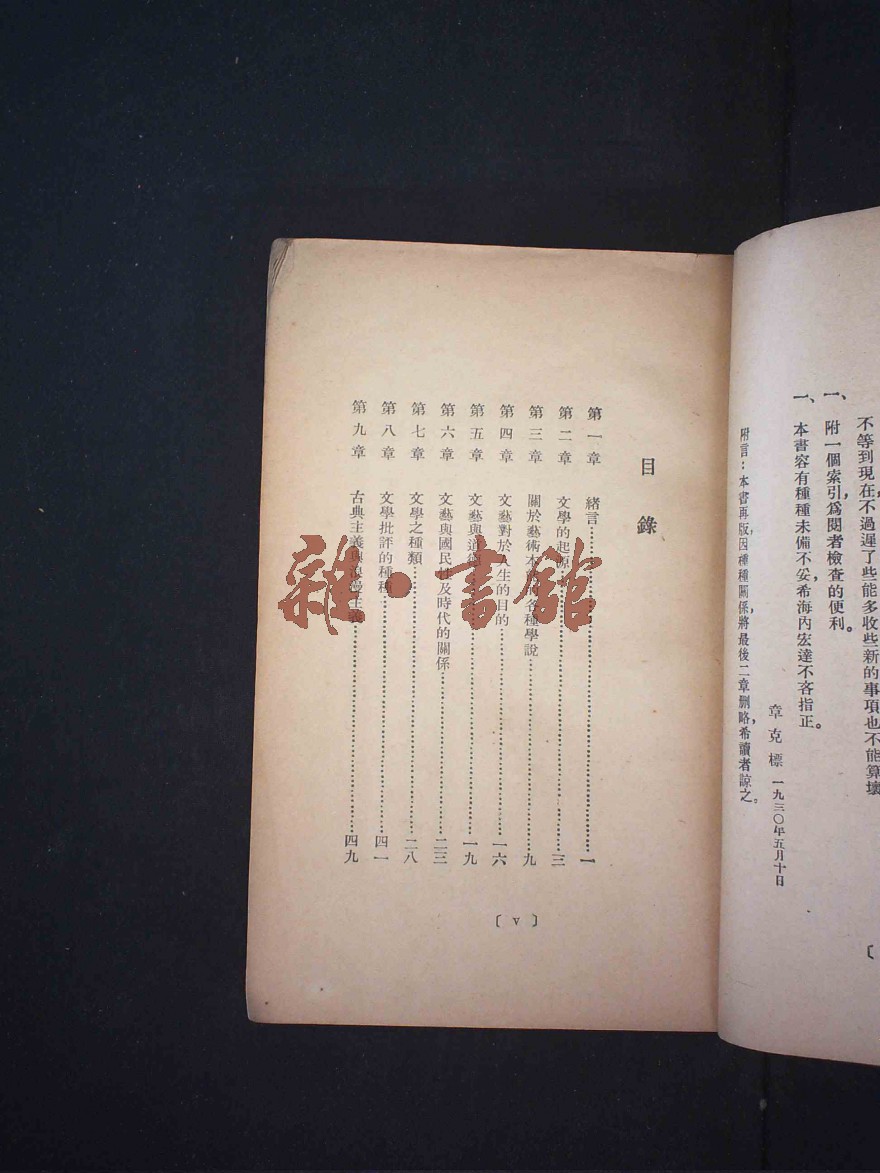 不等到現在,不過遲了些能多收些新的事項也不能算壞
一、附一個索引,爲閱者檢查的便利。
一、本書容有種種未備不妥,希海內宏達不吝指正。
章克標 一九三〇年五月十日
附言:本書再版,因種種關係,將最後二章刪略,希讀者諒之。
〔
目錄
第一章 緒言……一
第二章 文學的起源……三
第三章 關於藝術本質的各種學說……九
第四章 文藝對於人生的目的……一六
第五章 文藝與道德……一九
第六章 文藝與國民性及時代的關係……二三
第七章 文學之種類……二八
第八章 文學批評的種種……四一
第九章 古典主義與浪漫主義……四九
〔V〕
雜·書館